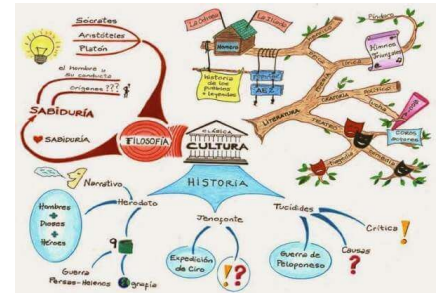 Sócrates
Aristóteles
Platón
el Hombre y
su conducta
orígenes ???
SABIDURÍA
SABIDURÍA
FILOSOFÍA
CLÁSICA
CULTURA
HISTORIA
La Odisea
La Ilíada
Homero
Historia
de los
pueblos
Leyendas
LITERATURA
ORATORIA
POLÍTICO
TEATRO
Tragedia
Comedia
COROS
actores
LÍRICA
Píndaro
Himnos
Triunfales
Narrativo
Herodoto
Hombres
+
Dioses
+
Héroes
9
Guerra
Persas-Helenos
grafía
Jenofonte
Expedición
de Ciro
!?
Tucídides
Guerra de
Peloponeso
Causas
?
Crítica
!